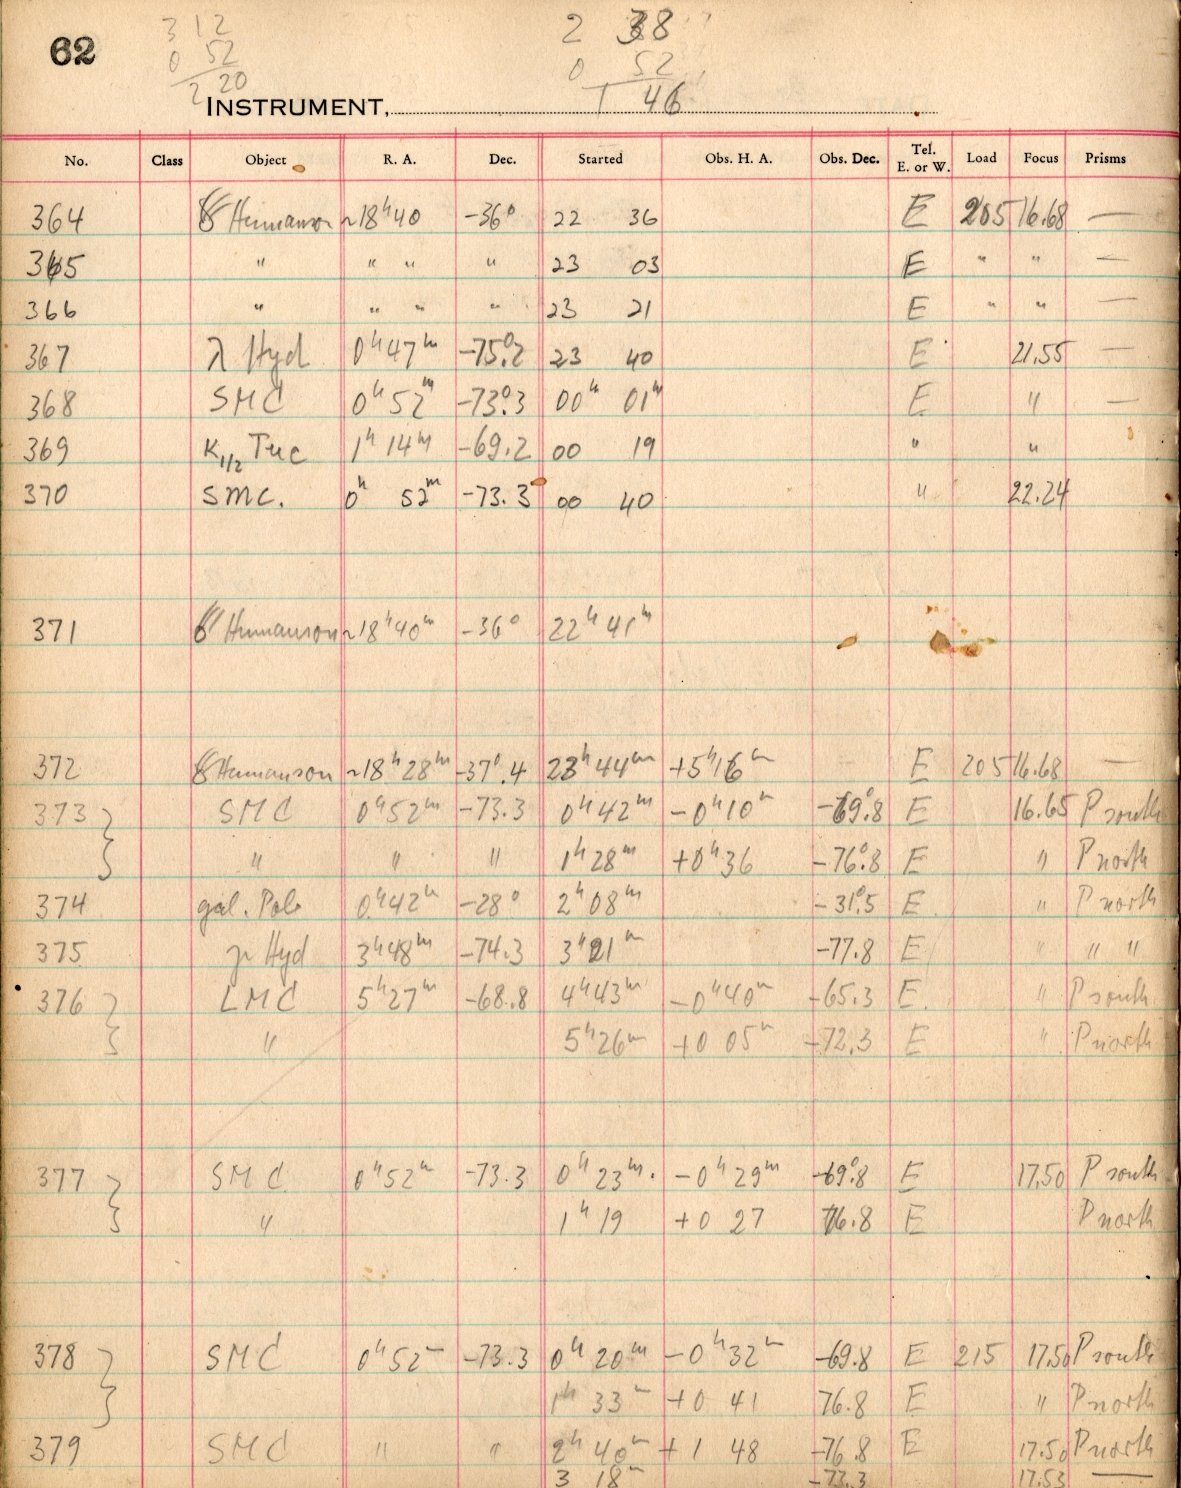 62
3 12
0 52
2 20
2 38
0 52
1 46
INSTRUMENT,
No. Class Object R. A. Dec. Started Obs. H. A. Obs. Dec. Tel. E. or W. Load Focus Prisms
364 ~18ʰ40 -36° 22 36 E 205 16.68 —
365 " " " " 23 03 E " " —
366 " " " " 23 21 E " " —
367 λ Hyd 0ʰ47ᵐ -75°.2 23 40 E 21.55 —
368 SMC 0ʰ52ᵐ -73°.3 00ʰ 01ᵐ E " —
369 K1/2 Tuc 1ʰ 14ᵐ -69.2 00 19 " "
370 SMC. 0ʰ 52ᵐ -73.3 00 40 " 22.24
371 ~18ʰ40ᵐ -36° 22ʰ 41ᵐ
372 ~18ʰ28ᵐ -37°.4 23ʰ 44ᵐ +5ʰ16ᵐ E 205 16.68 —
373 } SMC 0ʰ52ᵐ -73.3 0ʰ 42ᵐ -0ʰ10ᵐ -69°.8 E 16.65 P south
" " " 1ʰ 28ᵐ +0ʰ36 -76°.8 E " P north
374 gal. Pole 0ʰ42ᵐ -28° 2ʰ 08ᵐ -31°.5 E " P north
375 γ Hyd 3ʰ48ᵐ -74.3 3ʰ21ᵐ -77.8 E " " "
376 } LMC 5ʰ27ᵐ -68.8 4ʰ43ᵐ -0ʰ40ᵐ -65.3 E " P south
" 5ʰ26ᵐ +0 05ᵐ -72.3 E " P north
377 } SMC 0ʰ52ᵐ -73.3 0ʰ 23ᵐ. -0ʰ29ᵐ -69°.8 E 17.50 P south
" 1ʰ 19 +0 27 76.8 E P north
378 } SMC 0ʰ52ᵐ -73.3 0ʰ 20ᵐ -0ʰ32ᵐ -69.8 E 215 17.50 P south
1ʰ 33ᵐ +0 41 76.8 E " P north
379 SMC " " 2ʰ 40ᵐ +1 48 -76.8 E 17.50 P north
3 18ᵐ -73.3 17.53 —